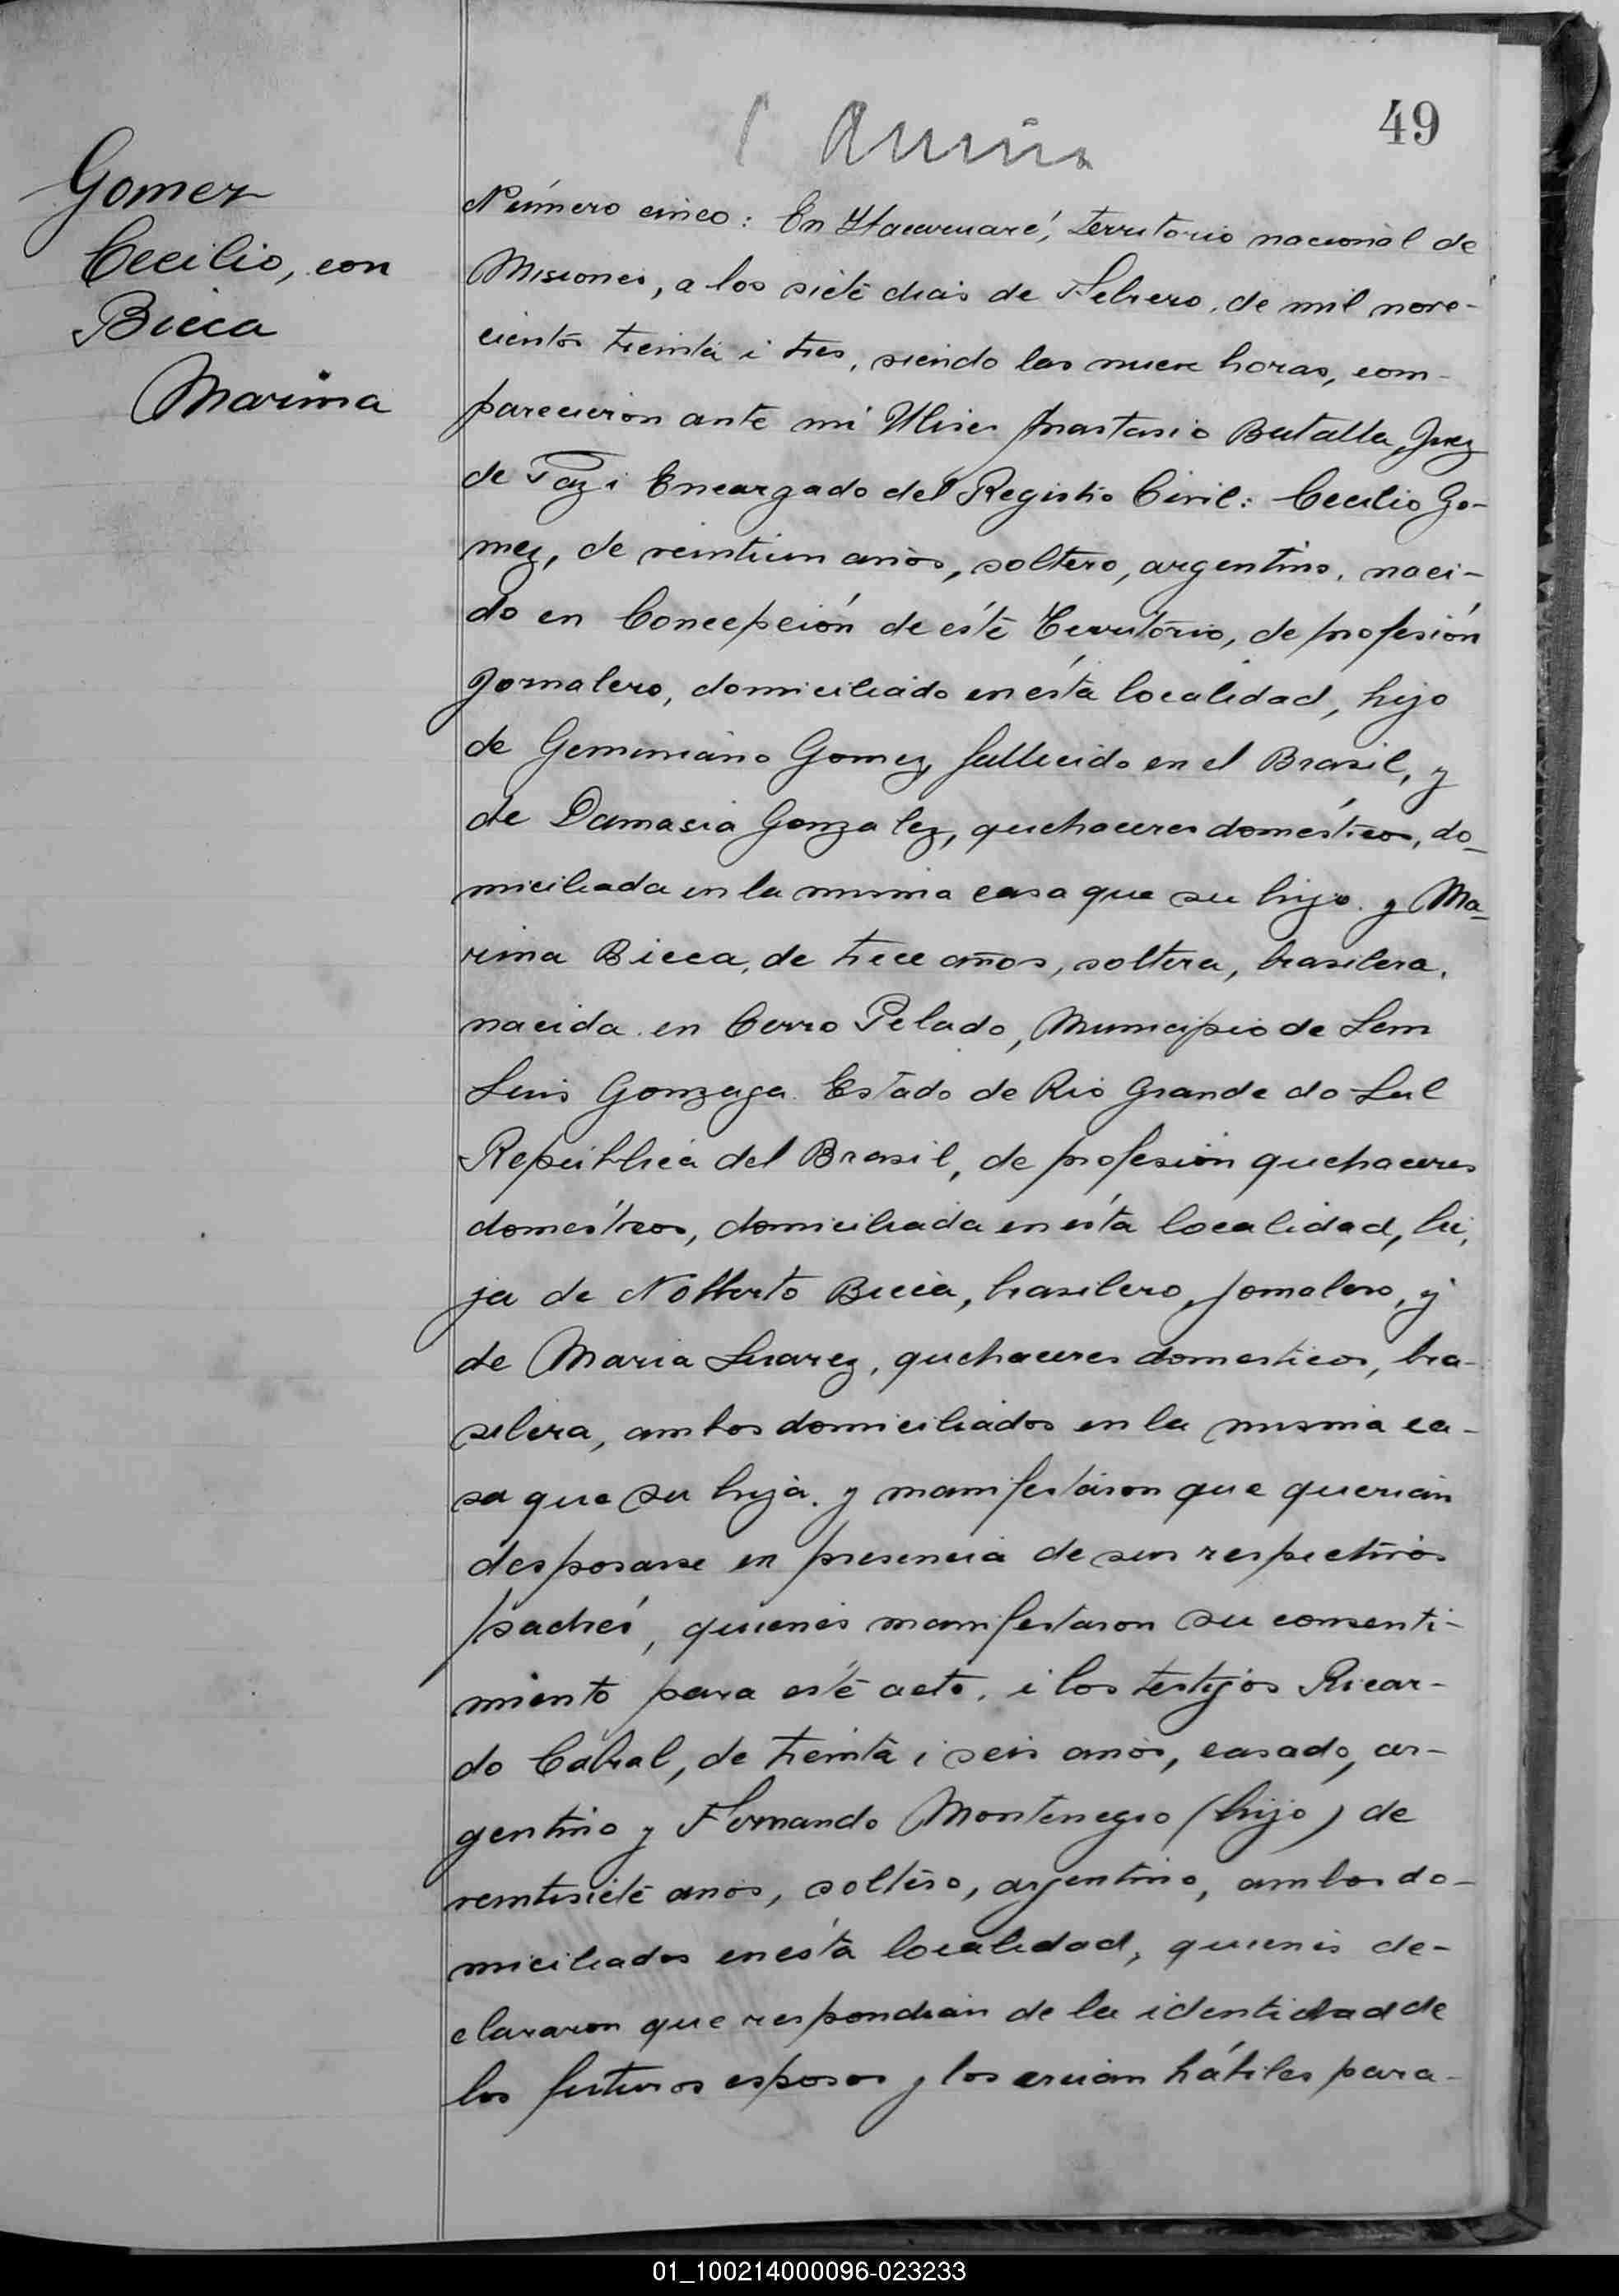 49
Gomez
Cecilio, con
Bicca
Marina
Número cinco: En Itacaruaré, territorio nacional de
Misiones, a los siete dias de Febrero, de mil nove-
cientos treinta i tres, siendo las nueve horas, com-
parecieron ante mi Ulises Anastasio Batalla, Juez
de Paz i Encargado del Registro Civil: Cecilio Go-
mez, de veintiun años, soltero, argentino, naci-
do en Concepción de éste Territorio, de profesión
Jornalero, domiciliado en ésta localidad, hijo
de Geminiano Gomez, fallecido en el Brasil, y
de Damasia Gonzalez, quehaceres domésticos, do-
miciliada en la misma casa que su hijo. y Ma-
rina Bicca, de trece años, soltera, brasilera,
nacida en Cerro Pelado, Municipio de San
Luis Gonzaga Estado de Rio Grande do Sul
República del Brasil, de profesión quehaceres
domésticos, domiciliada en ésta localidad, hi-
ja de Bicca, brasilero, jornalero, y
de Maria Suarez, quehaceres domesticos, bra-
silera, ambos domiciliados en la misma ca-
sa que su hija. y manifestaron que querian
desposarse en presencia de sus respectivos
padres, quienes manifestaron su consenti-
miento para este acto, i los testijos Ricar-
do Cabral, de treinta i seis años, casado, ar-
gentino y Fernando Montenegro (hijo) de
veintisiete anos, soltero, argentino, ambos do-
miciliados en ésta localidad, quienes de-
clararon que respondian de la identidad de
los futuros esposos y los creian hábiles para-
01_100214000096-023233